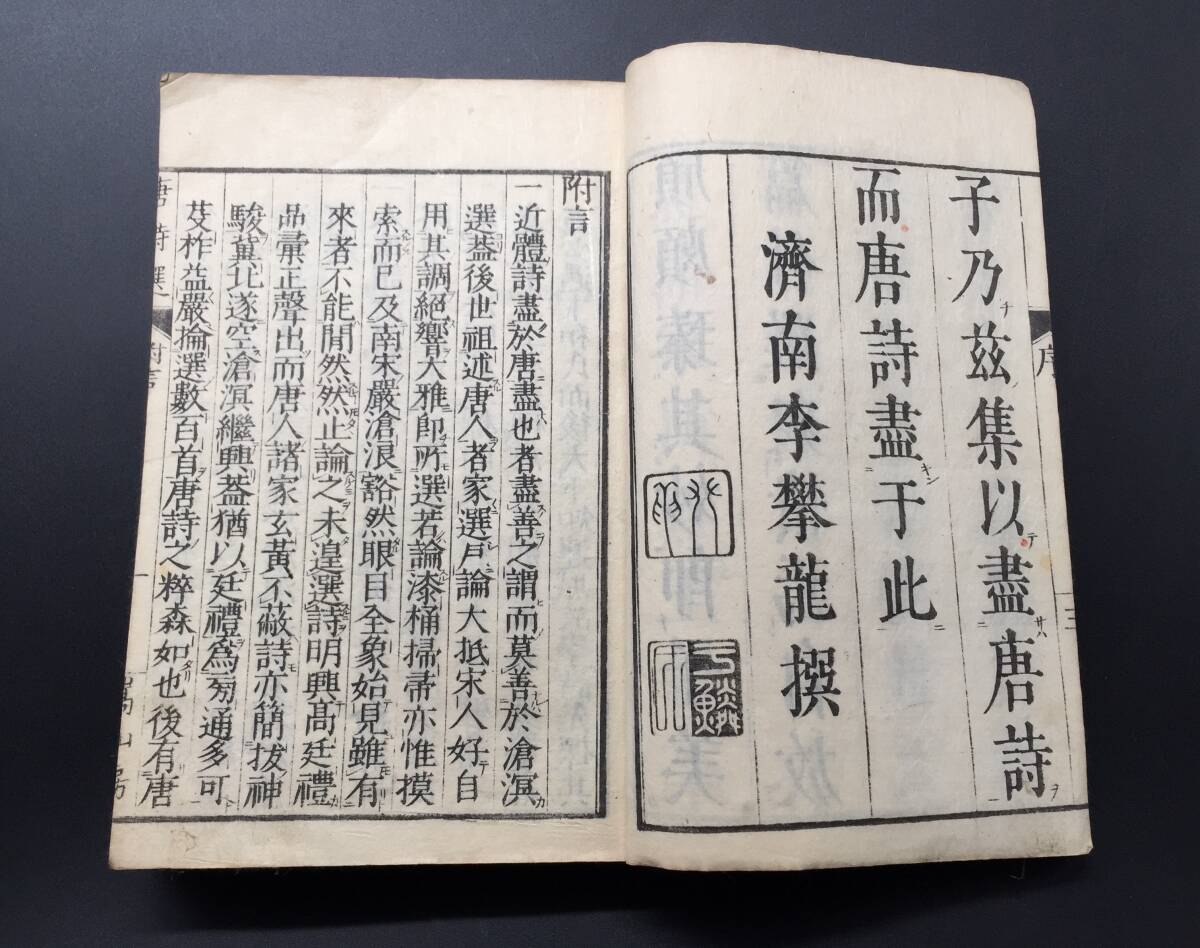 序
三
子乃茲集以盡唐詩
而唐詩盡于此
濟南李攀龍撰
于鱗
附言
一近體詩盡於唐盡也者盡善之謂而莫善於滄溟
選葢後世祖述唐人者家選戸論大抵宋人好自
用其調絕響大雅即所選若論漆桶掃帚亦惟摸
索而已及南宋嚴滄浪豁然眼目全象始見雖有
來者不能間然然止論之未遑選詩明興髙廷禮
品彙正聲出而唐人諸家玄黃不蔽詩亦簡拔神
駿冀北遂空滄溟繼興葢猶以廷禮爲芻通多可
芟柞益嚴掄選數百首唐詩之粹森如也後有唐
唐詩選
附言
一